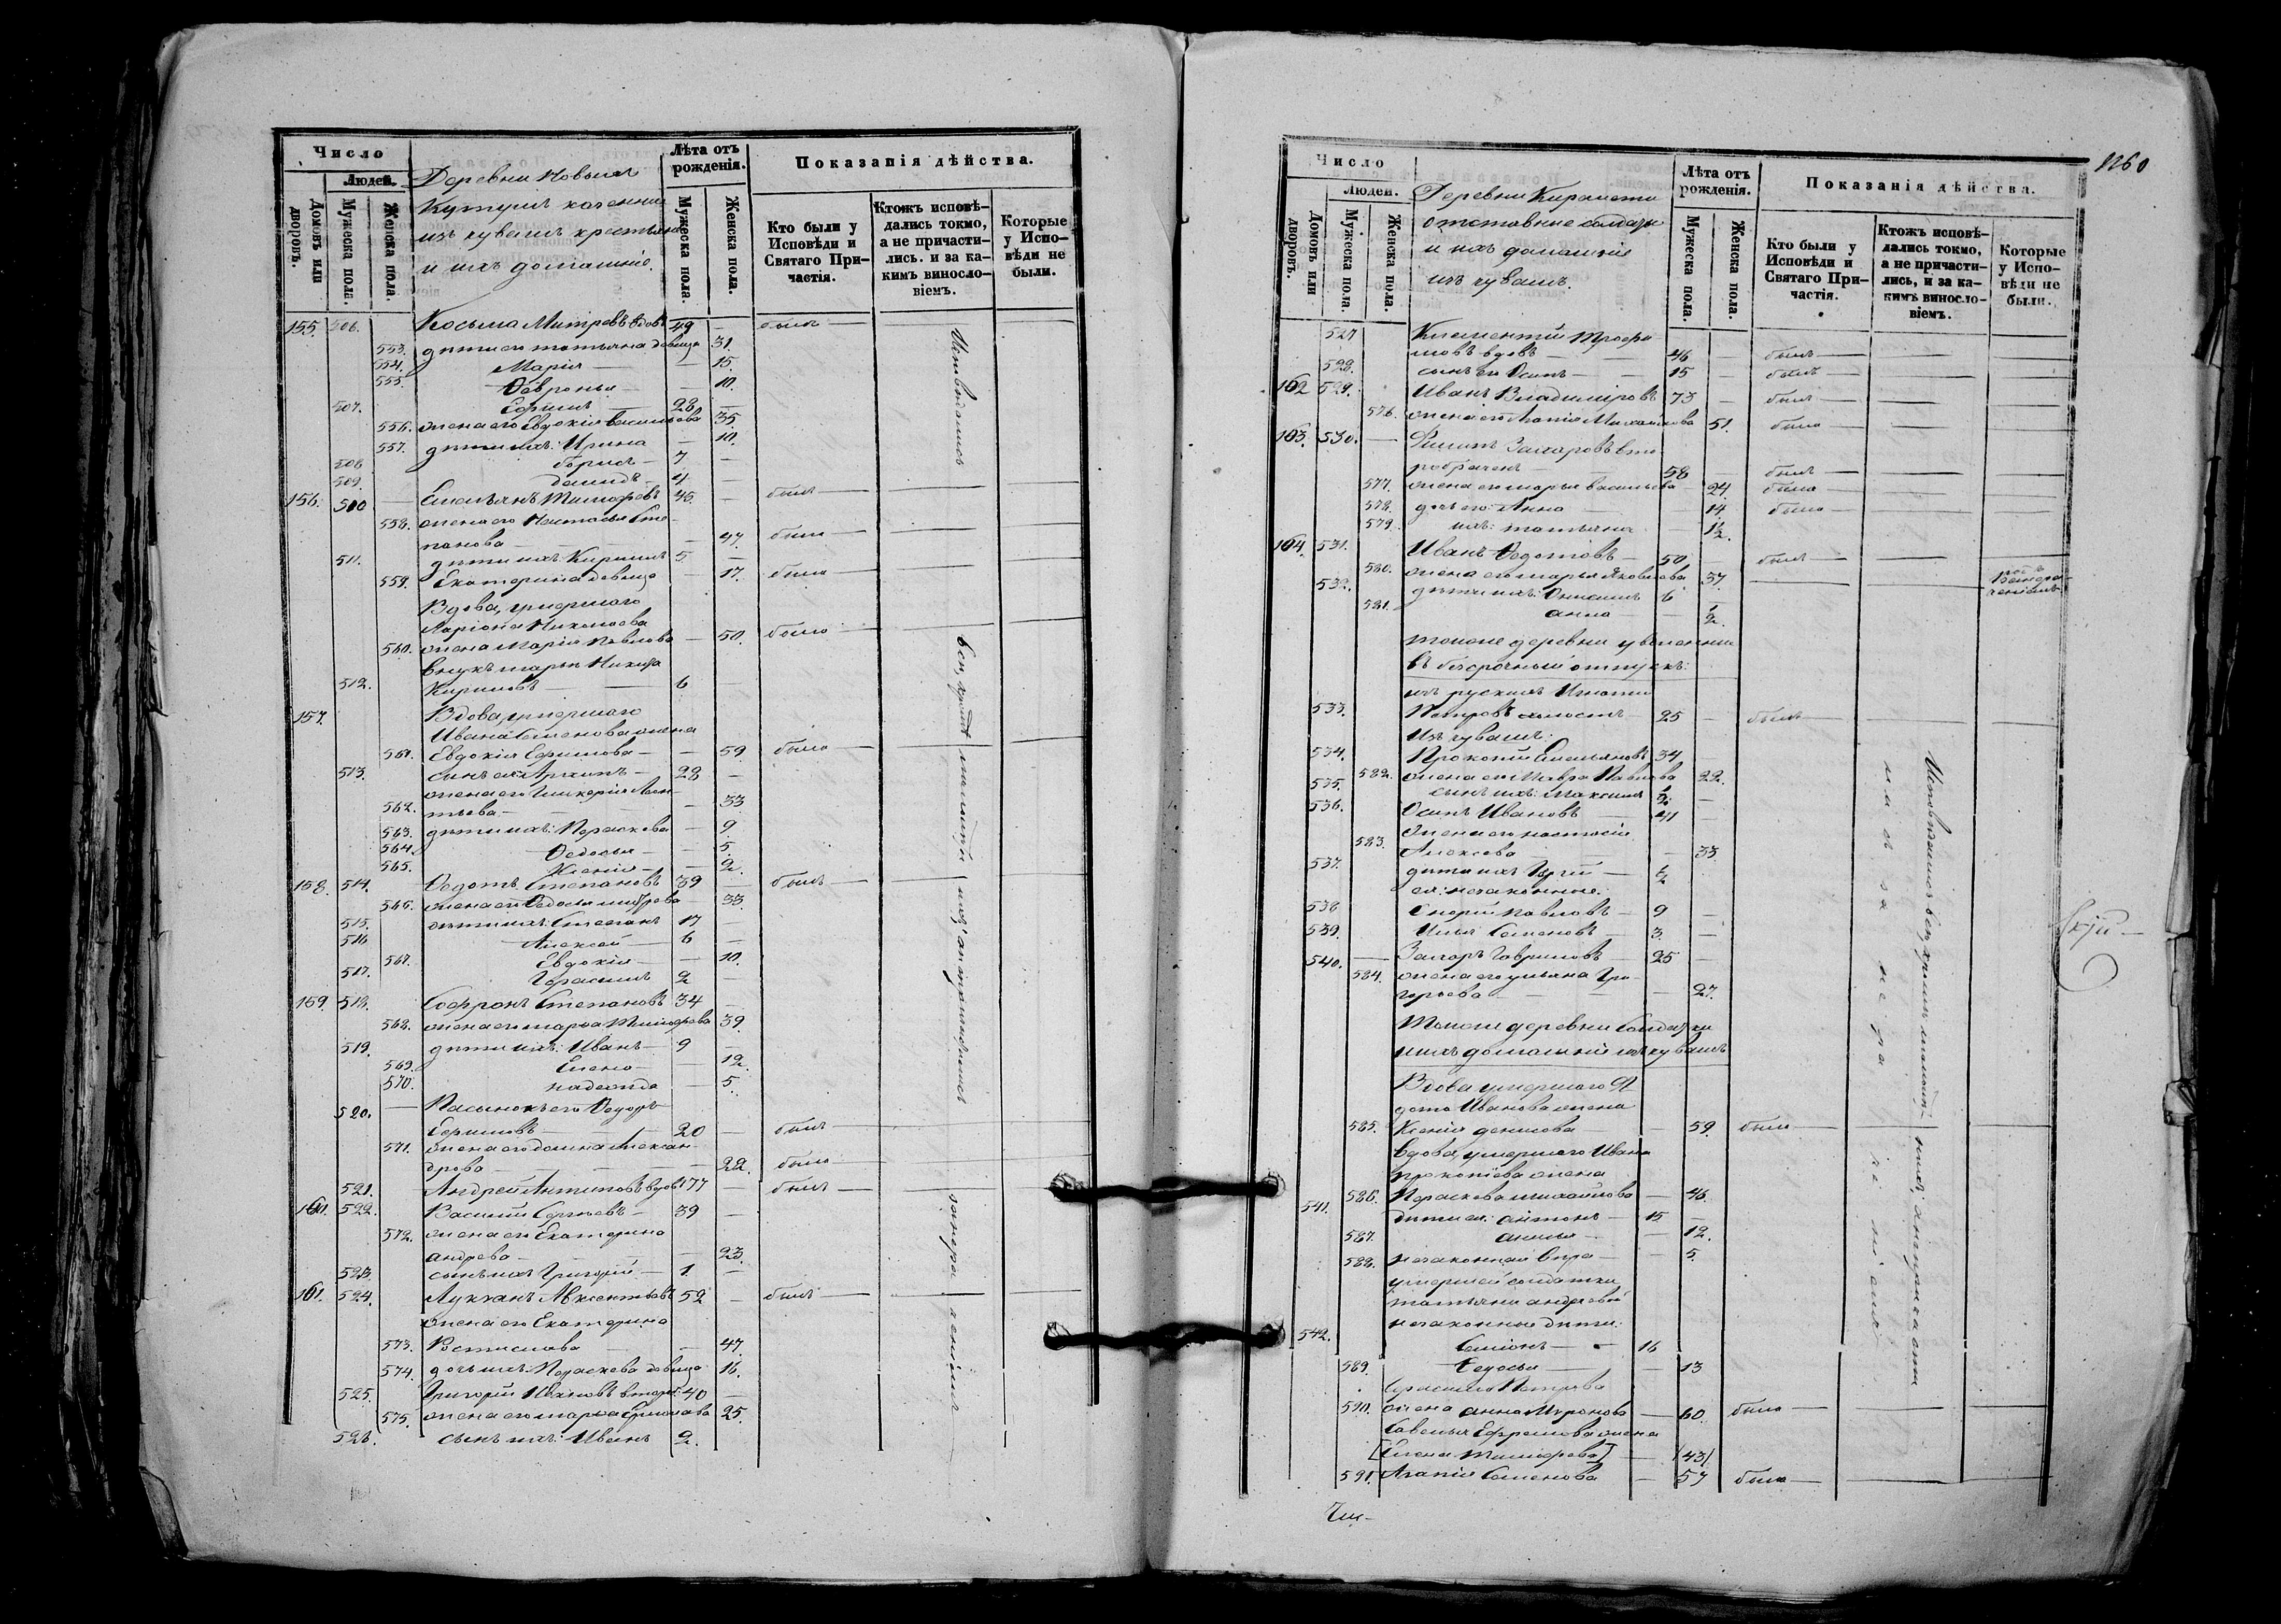 Число
Людей.
Домовъ или дворовъ.
Мужеска пола.
Женска пола.
Деревни Новыхъ
изъ чувашъ крестьяне
и ихъ домашніе.
Лѣта отъ рожденія.
Мужеска пола.
Женска пола.
Показанія дѣйства.
Кто были у Исповѣди и Святаго Причастія.
Ктожъ исповѣдались токмо, а не причастились. и за какимъ винословіемъ.
Которые у Исповѣди не были.
155. 506. Косьма Митревъ вдовъ 49 — былъ
553. дѣти его Татьяна девица 31.
554. Марія — 15.
555. Ѳевронья — 10.
507. Ефимъ 28 —
556. жена его Евдокія Васильева 35.
557. дѣти ихъ: Ирина — 10.
508 Борисъ 7 —
509. Давидъ 4 —
156. 510 Емельянъ Тимофеевъ 45. — былъ
558. жена его Настасья Сте-
панова — 47. была
511. дѣти ихъ Кирилъ 5 —
559. Екатерина девица — 17. была
Вдова, умершаго
Ларіона Николаева
560. жена Марія Павлова — 50. была
внукъ Марьи Никита
512. Кириловъ — 6
157. Вдова, умершаго
Ивана Семенова жена
561. Евдокія Ефимова — 59. была
513. сынъ ея Архипъ 28 —
жена его Гликерія Леон-
562. тьева — 33
563. дѣти ихъ: Параскева — 9.
564. Ѳедосья — 5.
565. Ксенія — 2.
158. 514. Ѳедотъ Степановъ 39 — былъ
566. жена его Ѳедосья Митрева 33.
515. дѣти ихъ: Степанъ 17 —
516 Алексей 6 —
567. Евдокія — 10.
517. Герасимъ 2
159. 518. Софронъ Степановъ 34 —
568. жена его Марѳа Тимофеева 39.
519. дѣти ихъ: Иванъ 9 —
569. Елена — 12.
570. Надежда — 5.
520. Пасынокъ его Ѳедоръ
Ефимовъ — 20 — былъ
571. жена его Домна Алексан-
дрова — 22. была
521. Андрей Антиповъ вдовъ 77 — былъ
160. 522. Василій Сергѣевъ 39 —
572. жена его Екатерина
Андрева — 23.
523. сынъ ихъ Григорій 1. —
161. 524. Лукіанъ Авксентьевъ 52 — былъ
жена его Екатерина
573. — 47.
574. дочь ихъ: Параскева девица 16.
525. Григорій Ивановъ 40 —
575. жена его Марѳа Ермолаева 25.
526. сынъ ихъ: Иванъ 2.
Исповѣдались
всѣ, кромѣ малолѣтн. ихъ, а не причастились
за нера ченіемъ
1260
Число
Людей.
Домовъ или дворовъ.
Мужеска пола.
Женска пола.
Деревни Киремети
отставные солдаты
и ихъ домашніе
изъ чувашъ.
Лѣта отъ рожденія.
Мужеска пола.
Женска пола.
Показанія дѣйства.
Кто были у Исповѣди и Святаго Причастія.
Ктожъ исповѣдались токмо, а не причастились, и за какимъ винословіемъ.
Которые у Исповѣди не были.
527 Климентій Трофи-
мовъ вдовъ 46 — былъ
528. сынъ его Осипъ 15 — былъ
162 529. Иванъ Владиміровъ 73 — былъ
576. жена его Агапія Михайлова 51. была
163. 530. Филипъ Захаровъ вто-
робрачен 58 былъ
577. жена его Марья Васильева 24. была
578. дочь его: Анна — 14. была
579. ихъ: Татьяна — 1½.
164. 531. Иванъ Ѳедотовъ 50 былъ
580. жена его Марья Яковлева 37. нераченіемъ
532. дѣти ихъ: Онисимъ 6 —
581. Анна — ½.
Тоиже деревни уволенные
въ безсрочный отпускъ:
изъ рускихъ Игнатій
533. Петровъ холостъ 25 — былъ
Изъ чувашъ:
534. Прокопій Емельяновъ 34
582. жена его Мавра Павлова 22.
535. сынъ ихъ: Максимъ ½ —
536. Осипъ Ивановъ 41 —
жена его Настасія
583. Алексева — 33.
537. дѣти ихъ ½
ея: незаконные.
538 Павловъ 9 —
539. Илья Семеновъ 3. —
540. Захаръ Гавриловъ 25 —
584. жена его Ульяна Гри-
горьева — 27.
Тоиже деревни солдатки
и ихъ домашніе изъ чувашъ
Вдова умершаго Ѳе-
дота Иванова жена
585. Ксенія Денисова — 59. была
Вдова, умершаго Ивана
Прокопіева жена
586. Параскева Михайлова — 46.
541. дѣти ея: Антонъ 15 —
587. Анисья — 12.
588. незаконная Вѣра — 5.
умершей солдатки
Татьяны Андревой
незаконные дѣти:
542. Семіонъ 16
589. Ѳедосья — 13
Герасима Петрова
590. жена Анна Миронова — 60. была
Савелья Ефремова жена
[Елена Тимофеева] — [43]
591. Агапія Семенова — 57 была
Исповѣдались всѣ, кромѣ малолѣтн. ихъ, а не причасти-
лись за нера че ніемъ